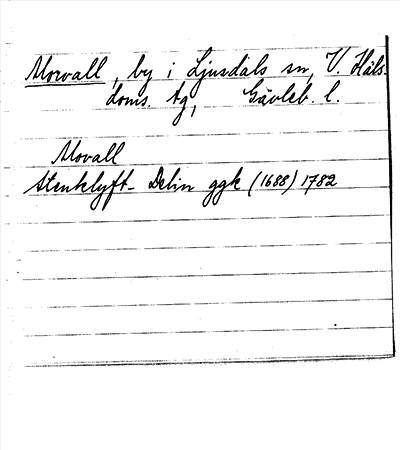 Morvall, by i Ljusdals sn, V. Häls-
doms. tg, Gävleb. l.
Movall
Stenklyft- Delin ggk (1688) 1782